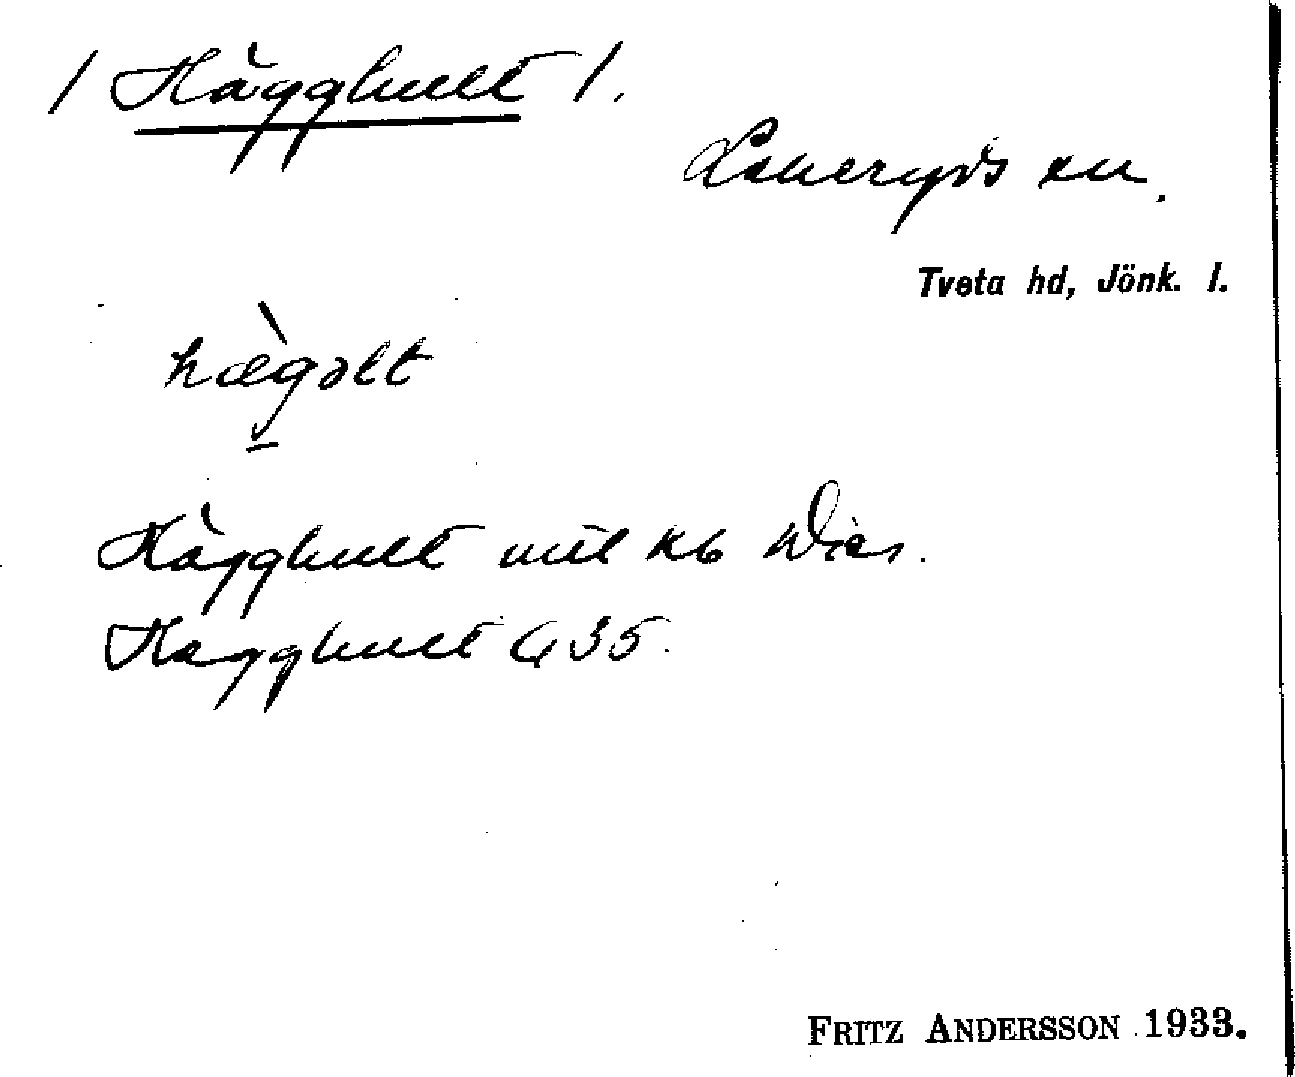 / Hägghult /.
Lekeryds sn.
Tveta hd, Jönk. l.
hægəlt
Hägghult mtl kb
Hagghult G 35.
FRITZ ANDERSSON 1933.